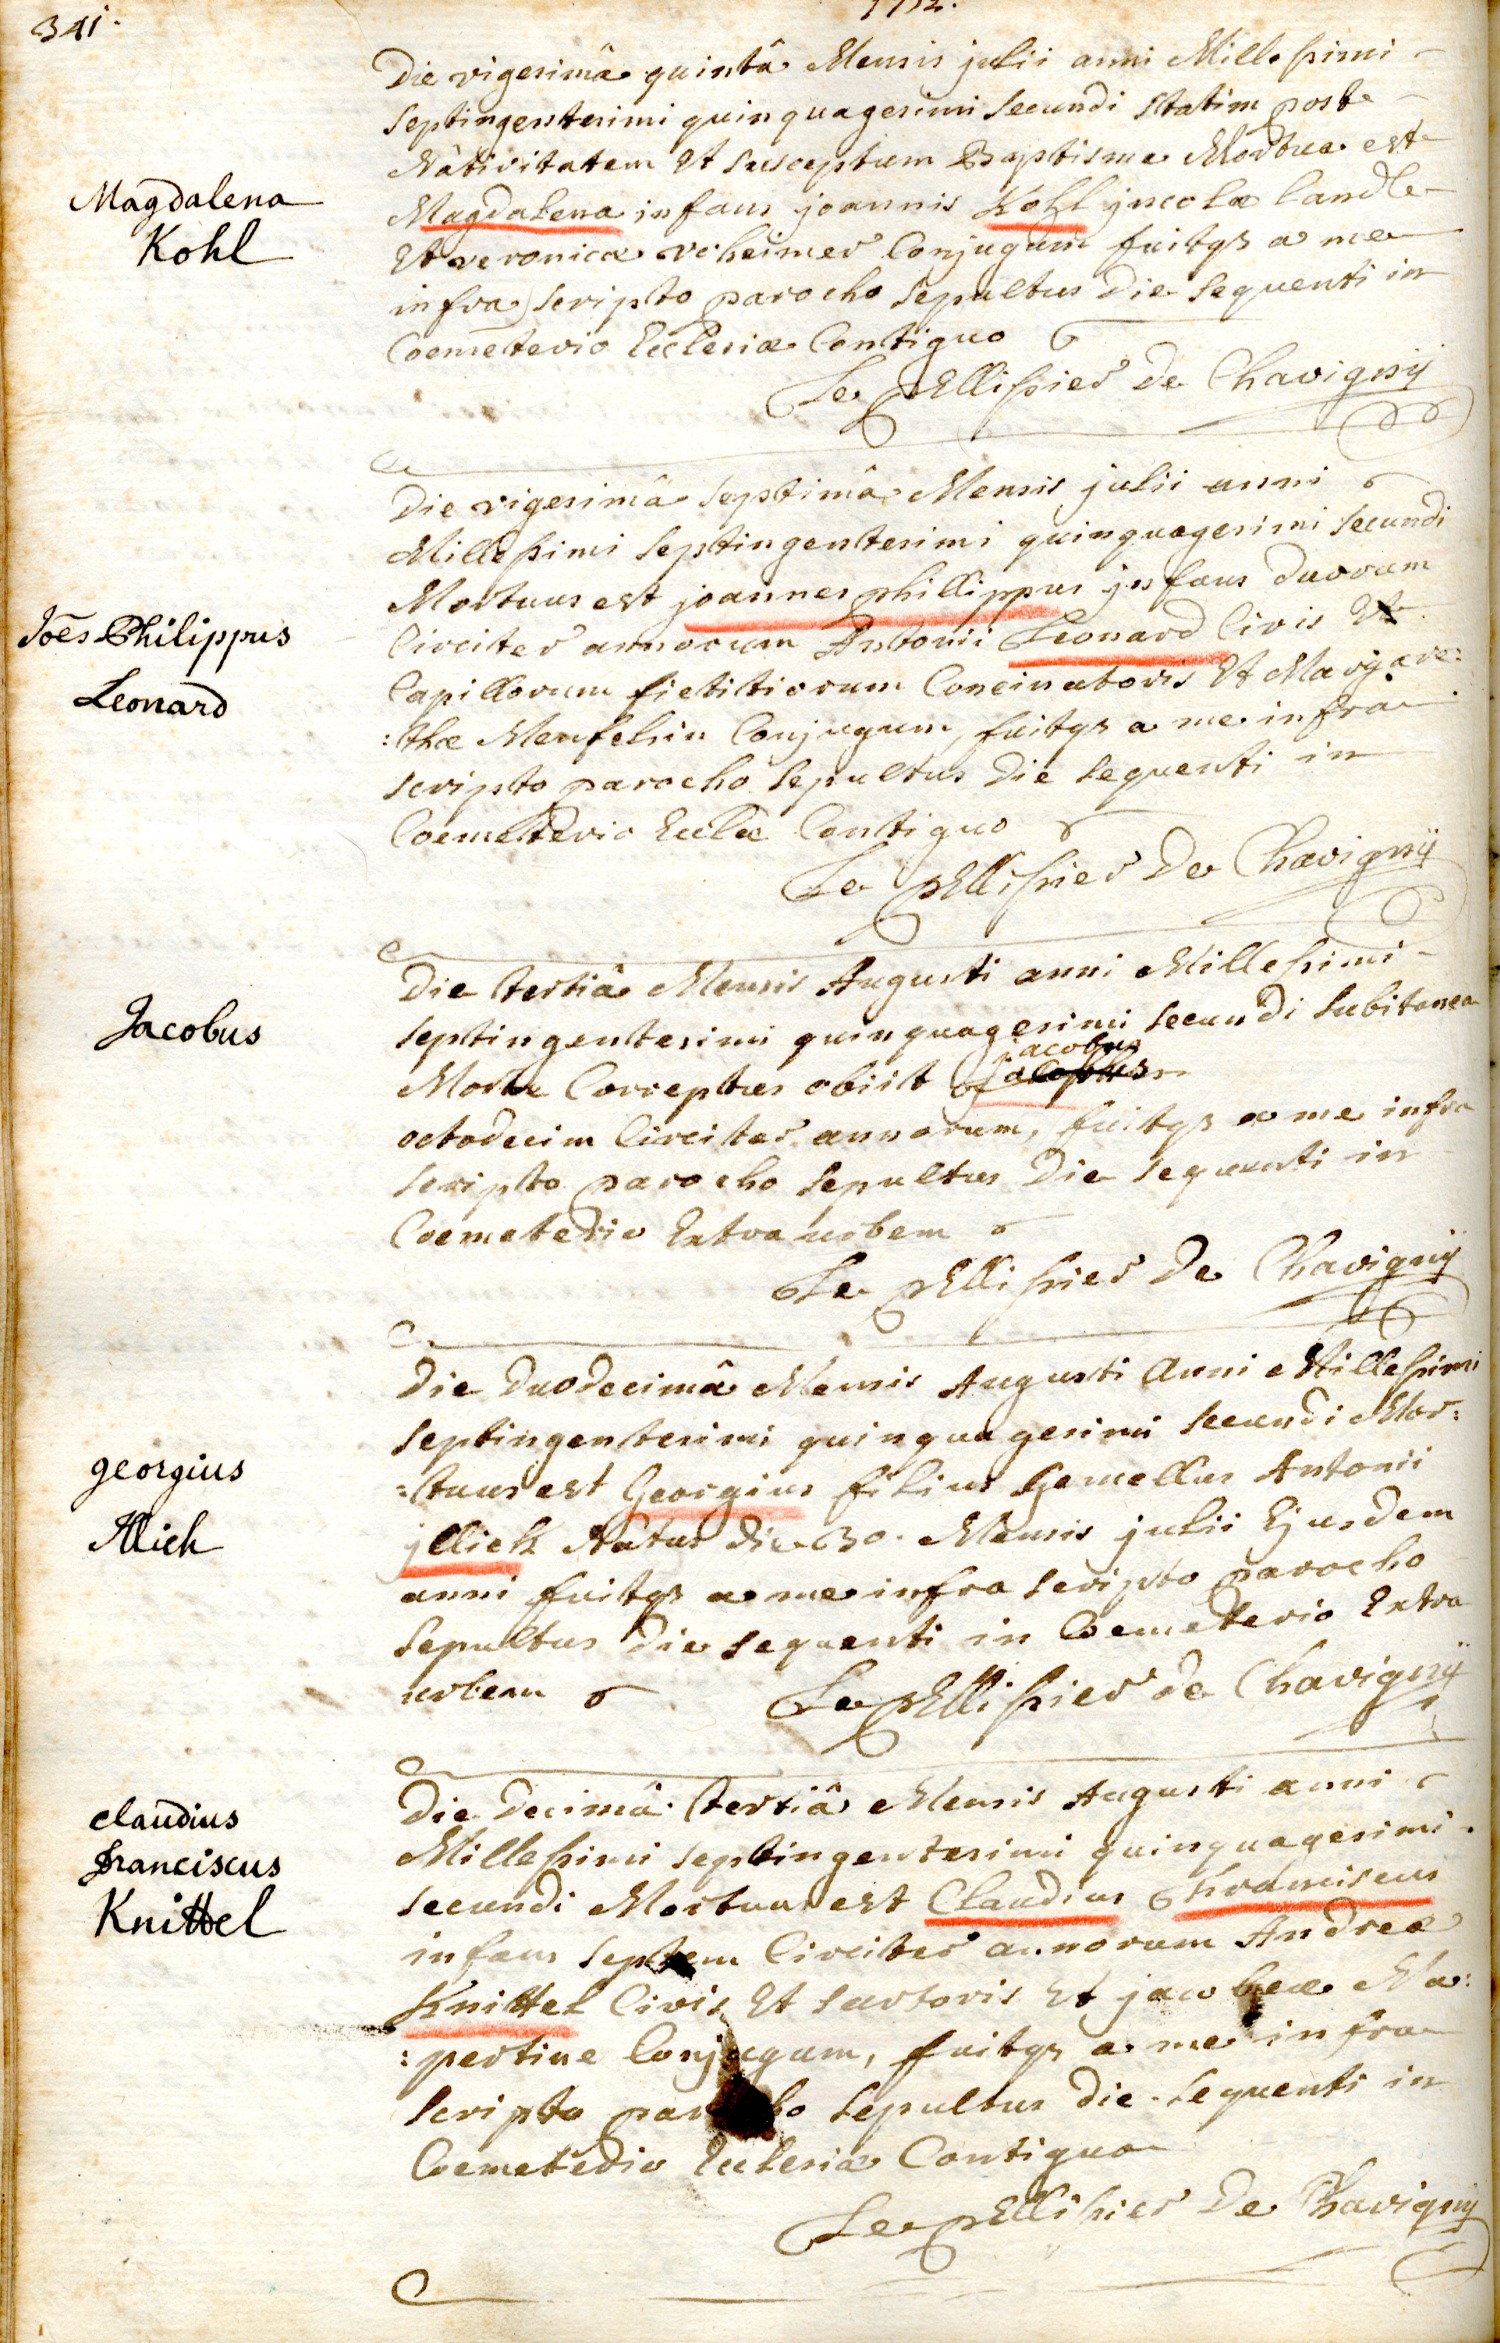 341.
1752.
Die vigesimâ quintâ Mensis julii anni Millessimi
septingentesimi quinquagesimi secundi statim post
Nâtivitatem Et susceptum Baptisma Mortua est
Magdalena
Kohl
Magdalena infans joannis Kohl jncolæ Landle
Et veronicæ Conjugum fuitqs a me
infra scripto parocho sepultus die sequenti in
Coemeterio Ecclesiæ Contiguo
Le pEllissier De Chavignÿ
Die vigesimâ septimâ Mensis julii anni
Millessimi septingentesimi quinquagesimi secundi
Joēs Philippus
Leonard
Mortuus est joannes phillippus jnfans duorum
Circiter annorum Antonii Leonard Civis Et
Capillorum fictitiorum Concinatoris Et Margare:
:thæ Conjugum, fuitqs a me infra
scripto parocho sepultus die sequenti in
Coemeterio Ecclæ Contiguo
Le pEllissier De Chavignÿ
Die tertiâ Mensis Augusti anni Millessimi
Jacobus
septingentesimi quinquagesimi secundi subitanea
jacobus
Morte Correptus obiit
octodecim Circiter annorum, fuitqs a me infra
scripto parocho sepultus Die sequenti in
Coemeterio Extra urbem
Le pEllissier De Chavignÿ
Die duodecimâ Mensis Augusti Anni Millessimi
septingentesimi quinquagesimi secundi Mor:
georgius
Illich
:tuus est Georgius filius Gemellus Antonii
jllick Nâtus die 30. Mensis julii Ejusdem
anni fuitqs a me infra scripto parocho
sepultus die sequenti in Coemeterio Extra
urbem
Le pEllissier de Chavignÿ
Die Decimâ tertiâ Mensis Augusti anni
claudius
franciscus
Knittel
Millessimi septingentesimi quinquagesimi
secundi Mortuus est Claudius franciscus
infans septem Circiter annorum Andreæ
Knittel Civis Et sartoris Et jacobeæ Ma:
:pertine Conjugum, fuitqs a me infra
scripto parocho sepultus die sequenti in
Coemeterio Ecclesiæ Contiguo
Le pEllissier De Chavignÿ